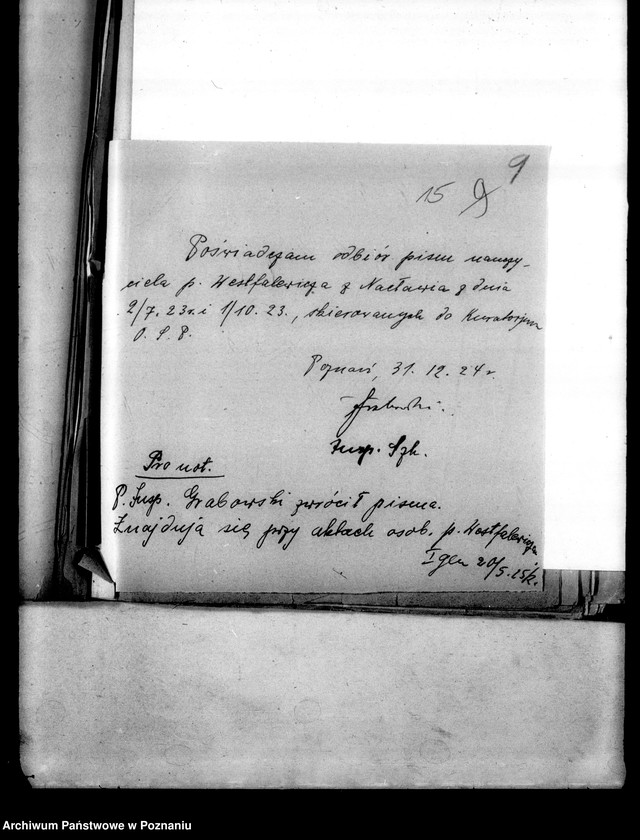 9
15
Poświadczam odbiór pism nauczy-
ciela p. Westfalewicza z Nacławia z dnia
2/7. 23 r. i 1/10. 23., skierowanych do Kuratorjum
O. S. P.
Poznań, 31. 12. 24 r.
Grabowski.
Insp. Szk.
Pro not.
P. Insp. Grabowski zwrócił pisma.
Znajdują się przy aktach osob. p. Westfalewicza
20/5. 25
Archiwum Państwowe w Poznaniu